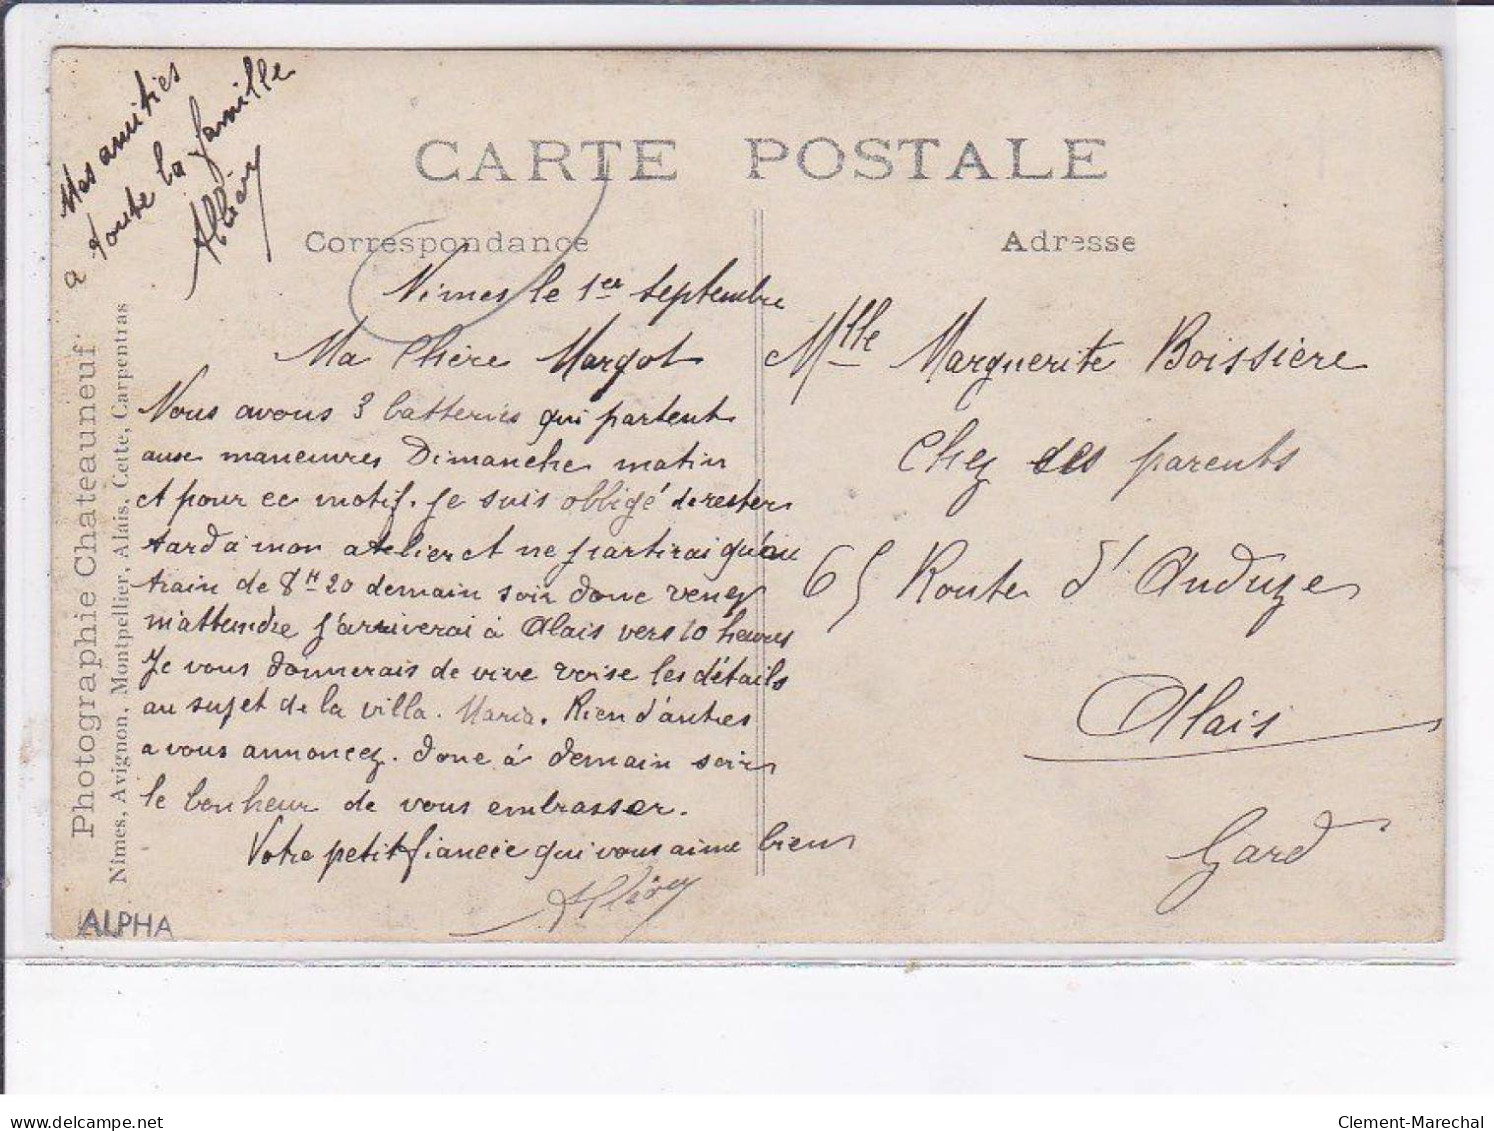 Mes amitiés
a toute la famille
CARTE POSTALE
Correspondance
Nimes le 1er Septembre
Ma Chère Margot
Nous avons 3 batteries qui partent
aux maneuvres Dimanche matin
et pour ce motif. Je suis obligé de rester
tard à mon atelier et ne partirai qu'au
train de 8H20 demain soir donc venez
m'attendre j'arriverai à Alais vers 10 heures
Je vous donnerais de vive voise les détails
au sujet de la villa. Maria. Rien d'autres
a vous annoncez. donc à demain soir
le bonheur de vous embrasser.
Votre petit fiancée qui vous aime bien
Adresse
Mlle Marguerite Boissière
Chez ses parents
65 Route d'Anduze
Alais
Gard
Photographie Chateauneuf
Nîmes, Avignon, Montpellier, Alais, Cette, Carpentras
ALPHA
Clement-Marechal
www.delcampe.net